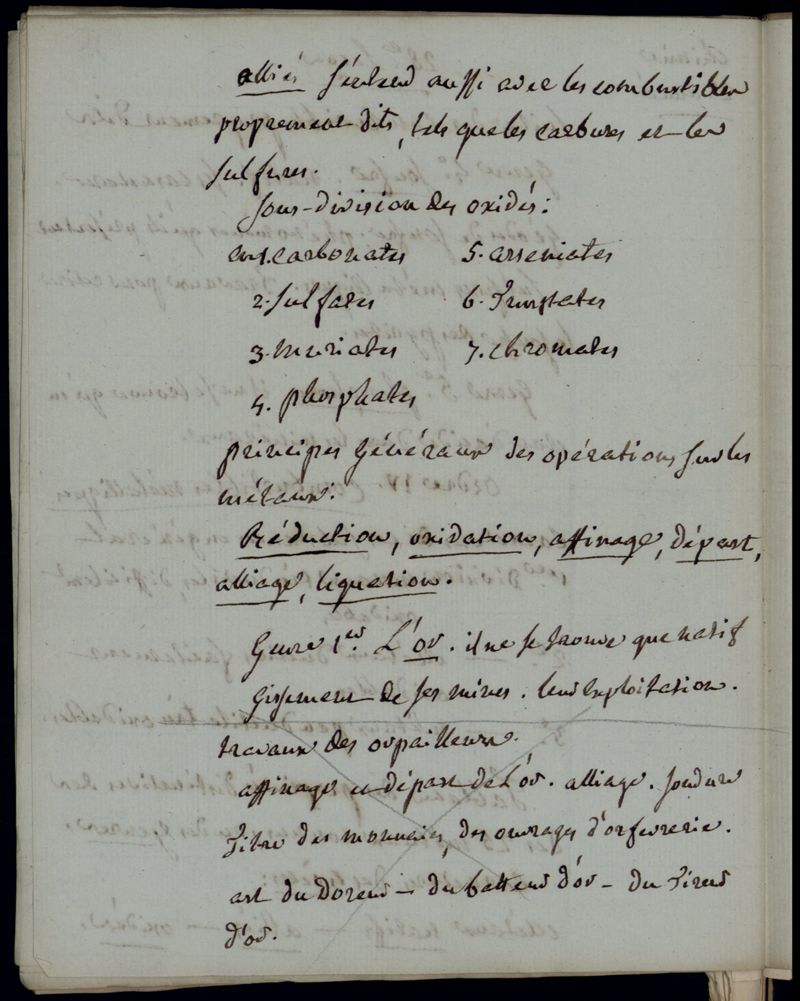 alliés s'entend aussi avec les combustibles
proprement dits, tels que les carbures et les
sulfures.
sous-division des oxidés:
en 1. carbonates 5. arseniates
2. sulfates 6. Tunstates
3. muriates 7. chromates
4. phosphates
principes généraux des opérations sur les
métaux:
Réduction, oxidation, affinage, départ,
alliage, liquation.
Genre 1er. L'or. il ne se trouve que natif
Gissement de ses mines. leur exploitation.
travaux des orpailleurs.
affinage et départ de L'or. alliage. soudure
Titre des monnaies, des ouvrages d'orfevrerie.
art du Doreur — du batteur d'or — du Tireur
d'or.